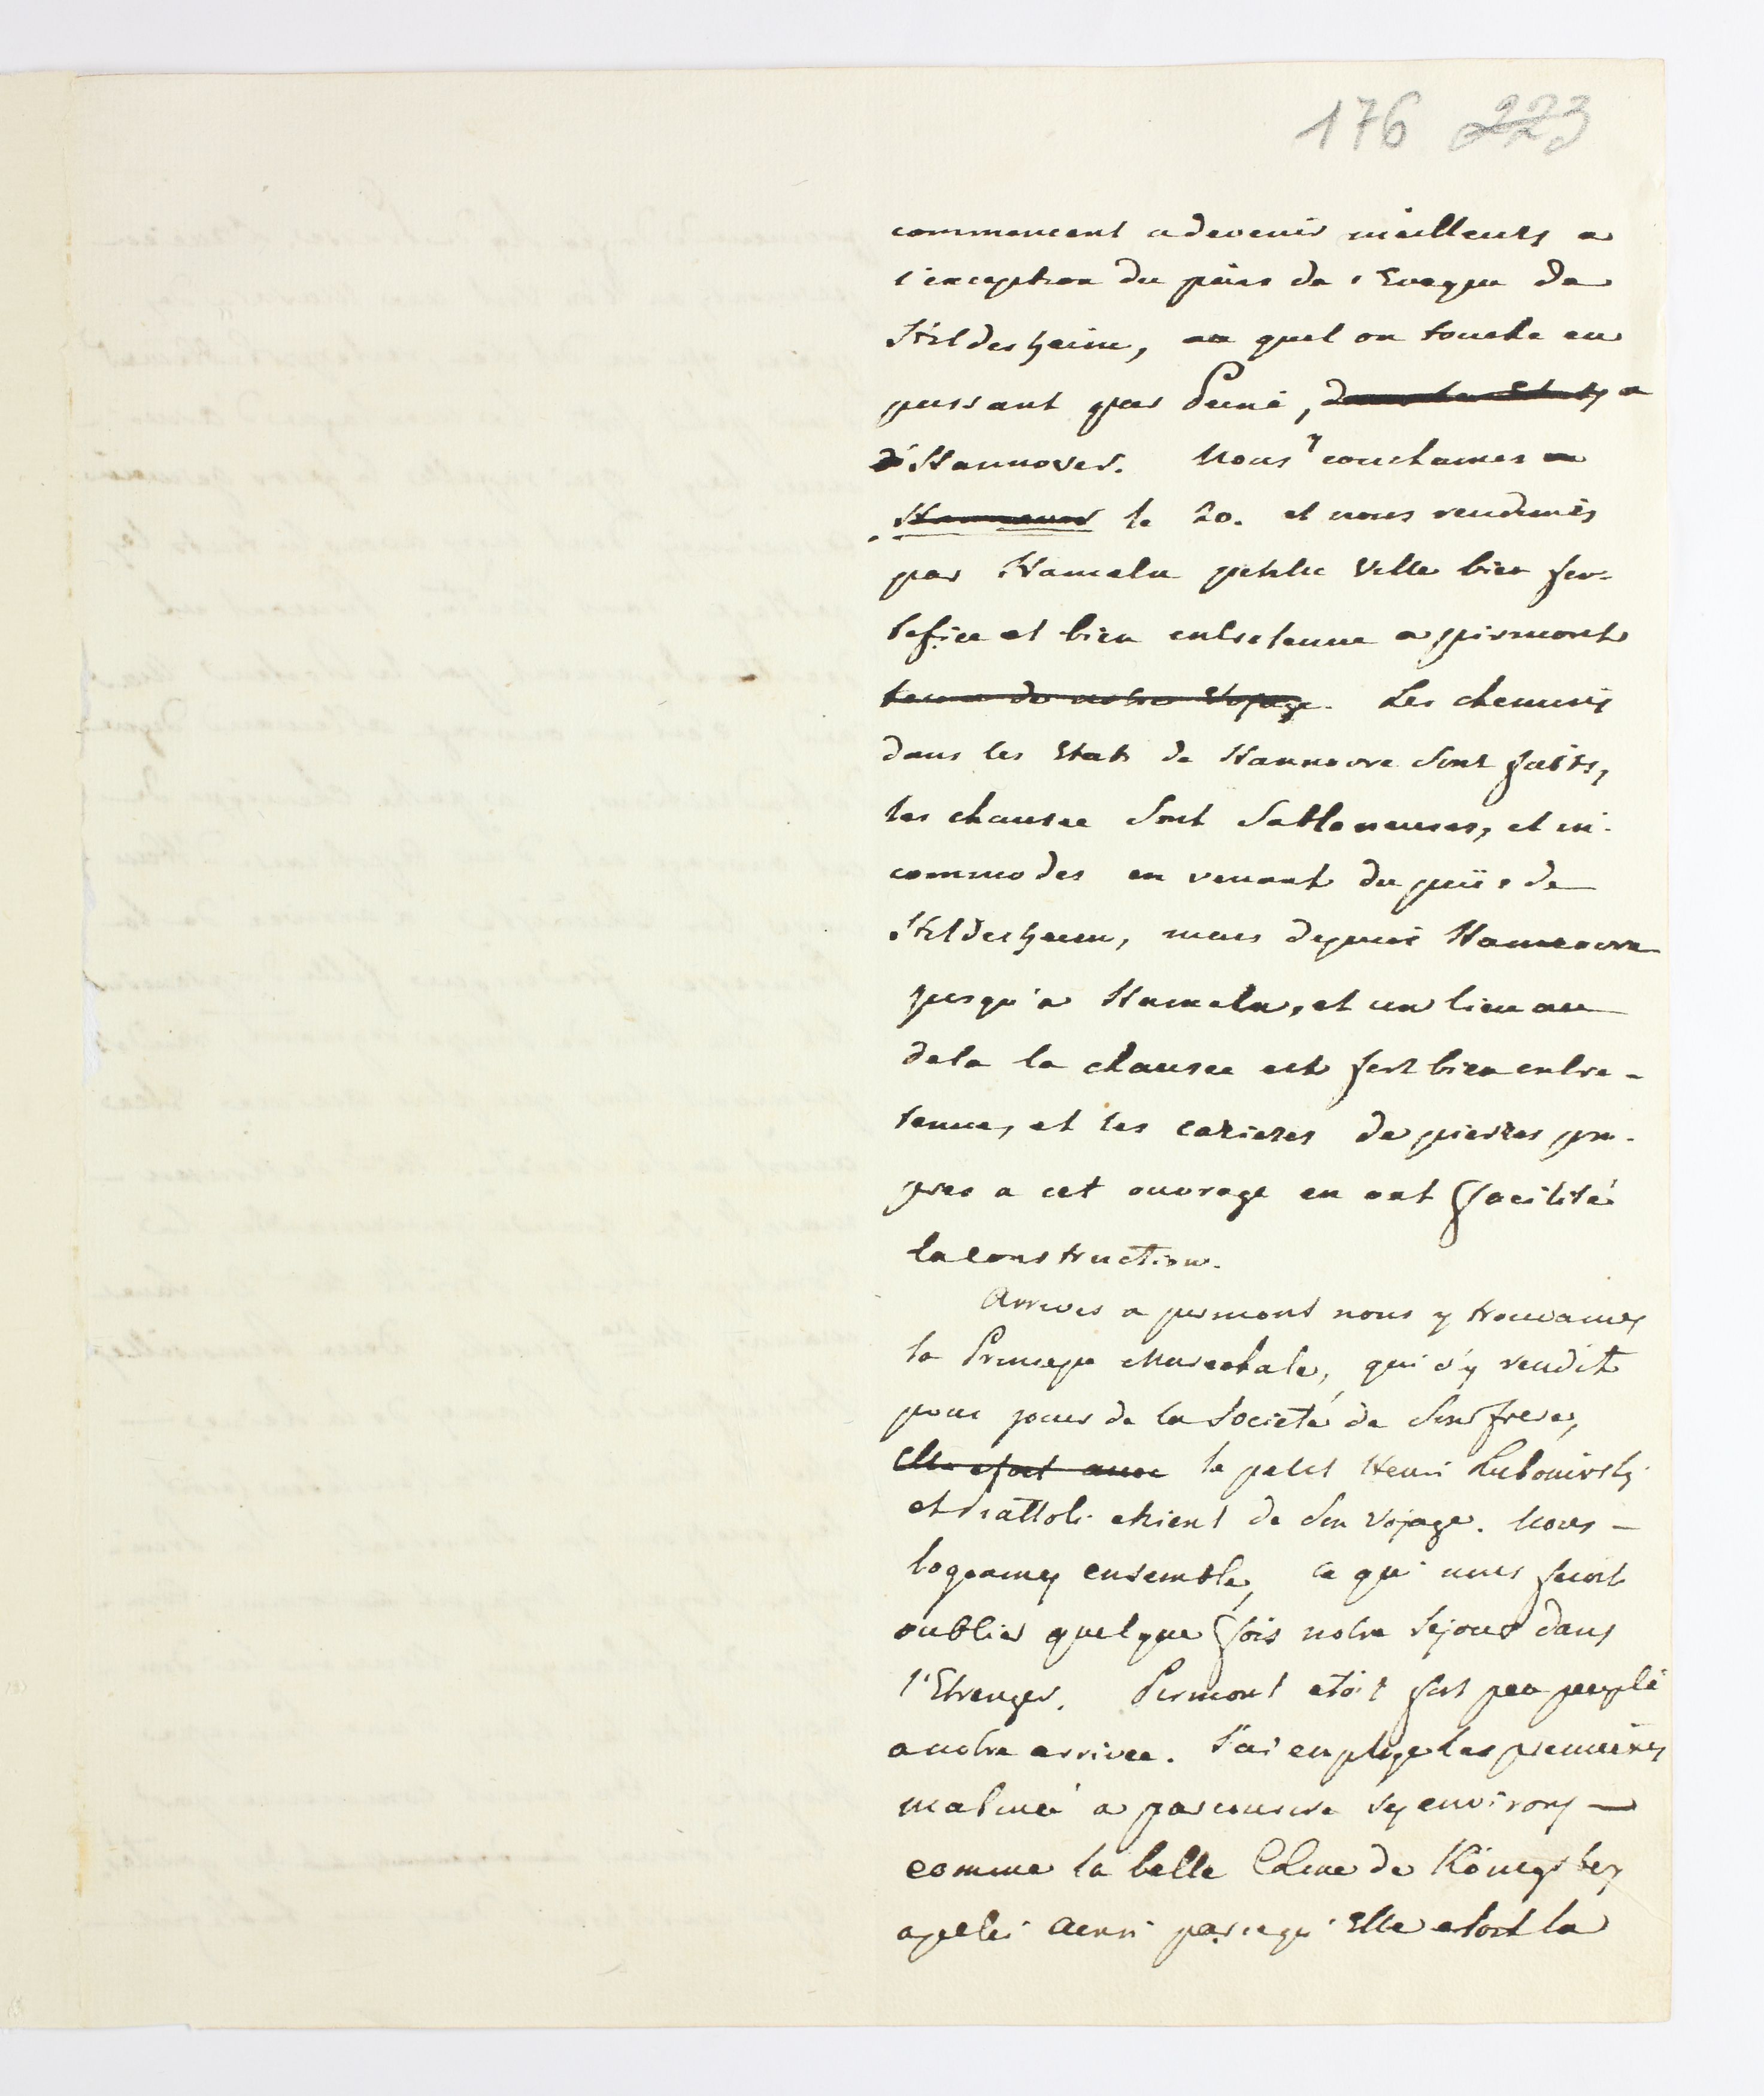 176 223
commencent a devenir meilleurs a
l'exception du païs de l'Eveque de
Hildesheim, au quel on touche en
passant par Peine, a
d'Hannover. Nous y couchames
le 20. et nous rendimes
par Hameln petite Ville bien for-
tefiee et bien entretenue a pirmont
terme de notre Vojage. Les chemins
dans les Etats de Hannovre sont faits,
les chausee sont sabloneuses, et in-
commodes en venant du païs de
Hildesheim, mais depuis Hannovre
jusqu'a Hameln, et un lieu au
dela la chausee est fort bien entre-
tenue, et les carieres de pierres pro-
pres a cet ouvrage en ont facilité
la construction.
Arrives a pirmont nous y trouvames
la Princesse Marechale, qui s'y rendit
pour jouir de la Societé de Son frere,
le petit Henri Lubomirski
et Piattoli etoient de Son Vojage. Nous -
logeames ensemble, ce qui nous faisoit
oublier quelque fois notre sejour dans
l'Etranger. Pirmont etoit fort peu peuplé
a notre arrivee. J'ai emploje les premieres
matineé a parcourire ses environs -
comme la belle Coline de Königsberg
apellé ainsi parcequ'Elle etoit la